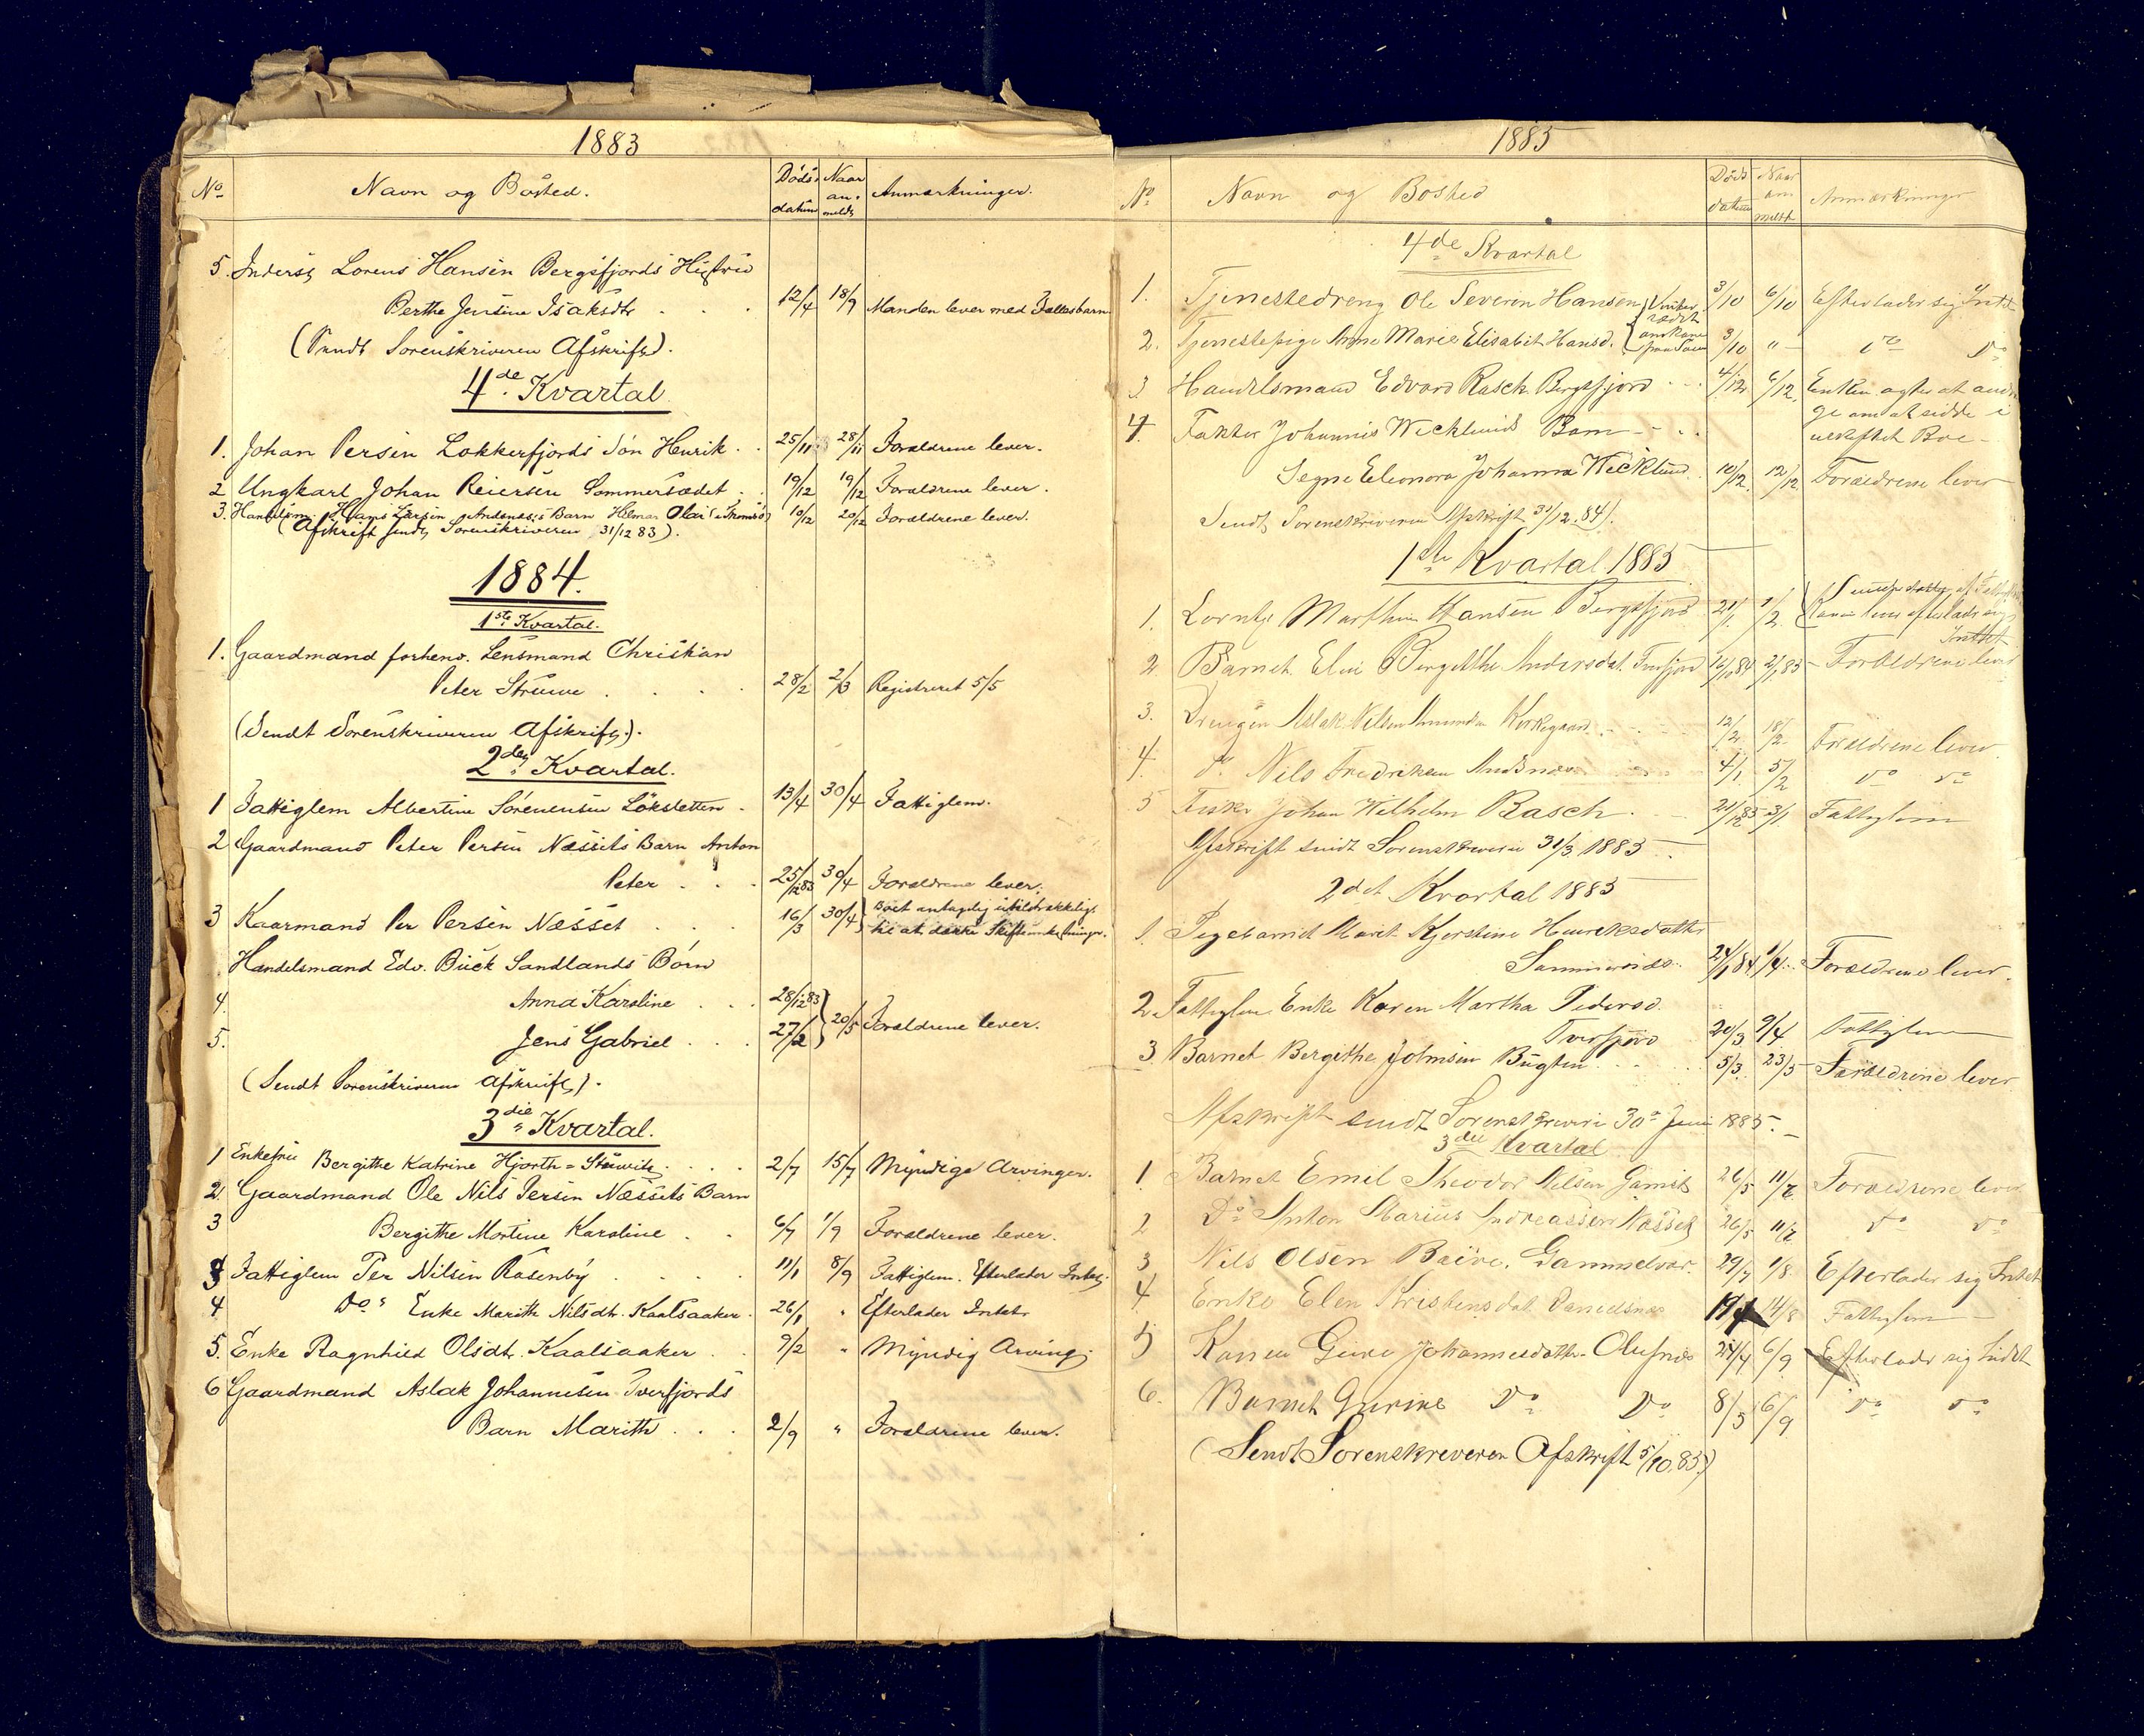 1883
No. Navn og Bosted. Døds datum Naar an-meldt Anmærkninger.
5. Inderst Lorens Hansen Bergsfjords Hustru
Berthe Jensine Isaksdtr . . . 12/4 18/9 Manden lever med Fællesbarn
(Sendt Sorenskriveren Afskrift).
4de Kvartal
1. Johan Persen Lokkerfjords Søn Henrik . . 25/11 28/11 Forældrene lever.
2 Ungkarl Johan Reiersen Sommersædet . . 19/12 19/12 Forældrene lever.
3. Handelsm. Hans Larsen Andsnæs's Barn Helmer Olai i Tromsø 10/12 20/12 Forældrene lever.
(Afskrift sendt Sorenskriveren 31/12 83).
1884.
1ste Kvartal.
1. Gaardmand forhenv. Lensmand Christian
Peter Struwe . . . . 28/2 2/3 Registreret 5/5
(Sendt Sorenskriveren Afskrift.).
2det Kvartal.
1 Fattiglem Albertine Sørensen Løksletten . 13/4 30/4 Fattiglem.
2 Gaardmand Peter Persen Næssets Barn Anton
Peter . . . 25/12 83 30/4 Forældrene lever.
3 Kaarmand Per Persen Næsset . . . . 16/3 30/4 } Boet antagelig utilstrækkeligt
til at dække Skifteomkostninger.
Handelsmand Edv. Buck Sandlands Børn
4. Anna Karoline . . . 28/12 83 }
5. Jens Gabriel . . . 27/2 } 20/5 Forældrene lever.
(Sendt Sorenskriveren Afskrift).
3die Kvartal.
1 Enkefru Bergithe Katrine Hjorth = . . . . 2/7 15/7 Myndige Arvinger.
2. Gaardmand Ole Nils Persen Næssets Barn
3 Bergithe Mortine Karoline . . 6/7 1/9 Forældrene lever.
3 Fattiglem Per Nilsen Rosenby . . . . 11/1 8/9 Fattiglem. Efterlader Intet.
4 Do " Enke Marith Nilsdtr. Kaalsaaker . 26/1 " Efterlader Intet
5. Enke Ragnhild Olsdtr. Kaalsaaker . . 9/2 " Myndig Arving.
6 Gaardmand Aslak Johannesen Tverfjords
Barn Marith . . . 2/9 " Forældrene lever.
1885
No Navn og Bosted Døds datum Naar an meldt Anmærkninger
4de Kvartal
1. Tjenestedreng Ole Severin Hansen 3/10 6/10 Efterlader sig Intet
2. Tjenestepige Anne Marie Elisabet Hansd. 3/10 " — do do
3 Handelsmand Edvard Rasch Bergsfjord . . . 4/12 6/12 Enken agter at
om at sidde i
uskiftet Boe -
4. Faktor Johannis Wecklunds Barn - . .
Signe Eleonora Johanna Wecklund . 10/12 12/12 Forældrene lever
Sendt Sorenskriveren Afskrift 31/12.84).
1ste Kvartal 1885
1. Lorntz Marthin Hansen Bergsfjord 21/1 1/2 Konen lever efterlader sig
Intet
2 Barnet Elen Birgithe Andersdat. Tverfjord 12/10 84 2/1 85 - Forældrene lever
3. Drengen Aslak Nilsen Amundsen Kirkegaard . . . 12/2 18/2 Forældrene lever
4. do Nils Fredriksen Andsnæs . . . 4/1 5/2 do do
5 Fisker Johan Wilhelm Rasch . . 21/12 85 3/1 Fattiglem
Afskrift sendt Sorenskriveren 31/3 1885 . .
2det Kvartal 1885
1. Pigebarnet Marit Kjerstine Henriksdatter
24/1 84 1/4 . . Forældrene lever.
2 Fattiglem Enke Karen Martha Pedersd.
Tverfjord 20/3 9/4 Fattiglem
3. Barnet Bergithe Johnsen Bugten . . . . 5/3 23/5 Forældrene lever
Afskrift sendt Sorenskriveri 30te Juni 1885. -
3die Kvartal
1. Barnet Emil Theodor Nilsen 26/5 11/7 Forældrene lever
2 Do Anton Marius Andreassen Næsset 26/5 11/7 do do
3 Nils Olsen Gammelvær. 29/7 1/8 Efterlader sig Intet
4 Enke Elen Kristensdat. 14/8 Fattiglem —
5 Konen Johannesdatter Olufnæs 24/7 6/9 Efterlader sig Intet
6. Barnet Gurine do do 8/5 6/9 do do
(Sendt Sorenskriveren Afskrift 5/10.85)